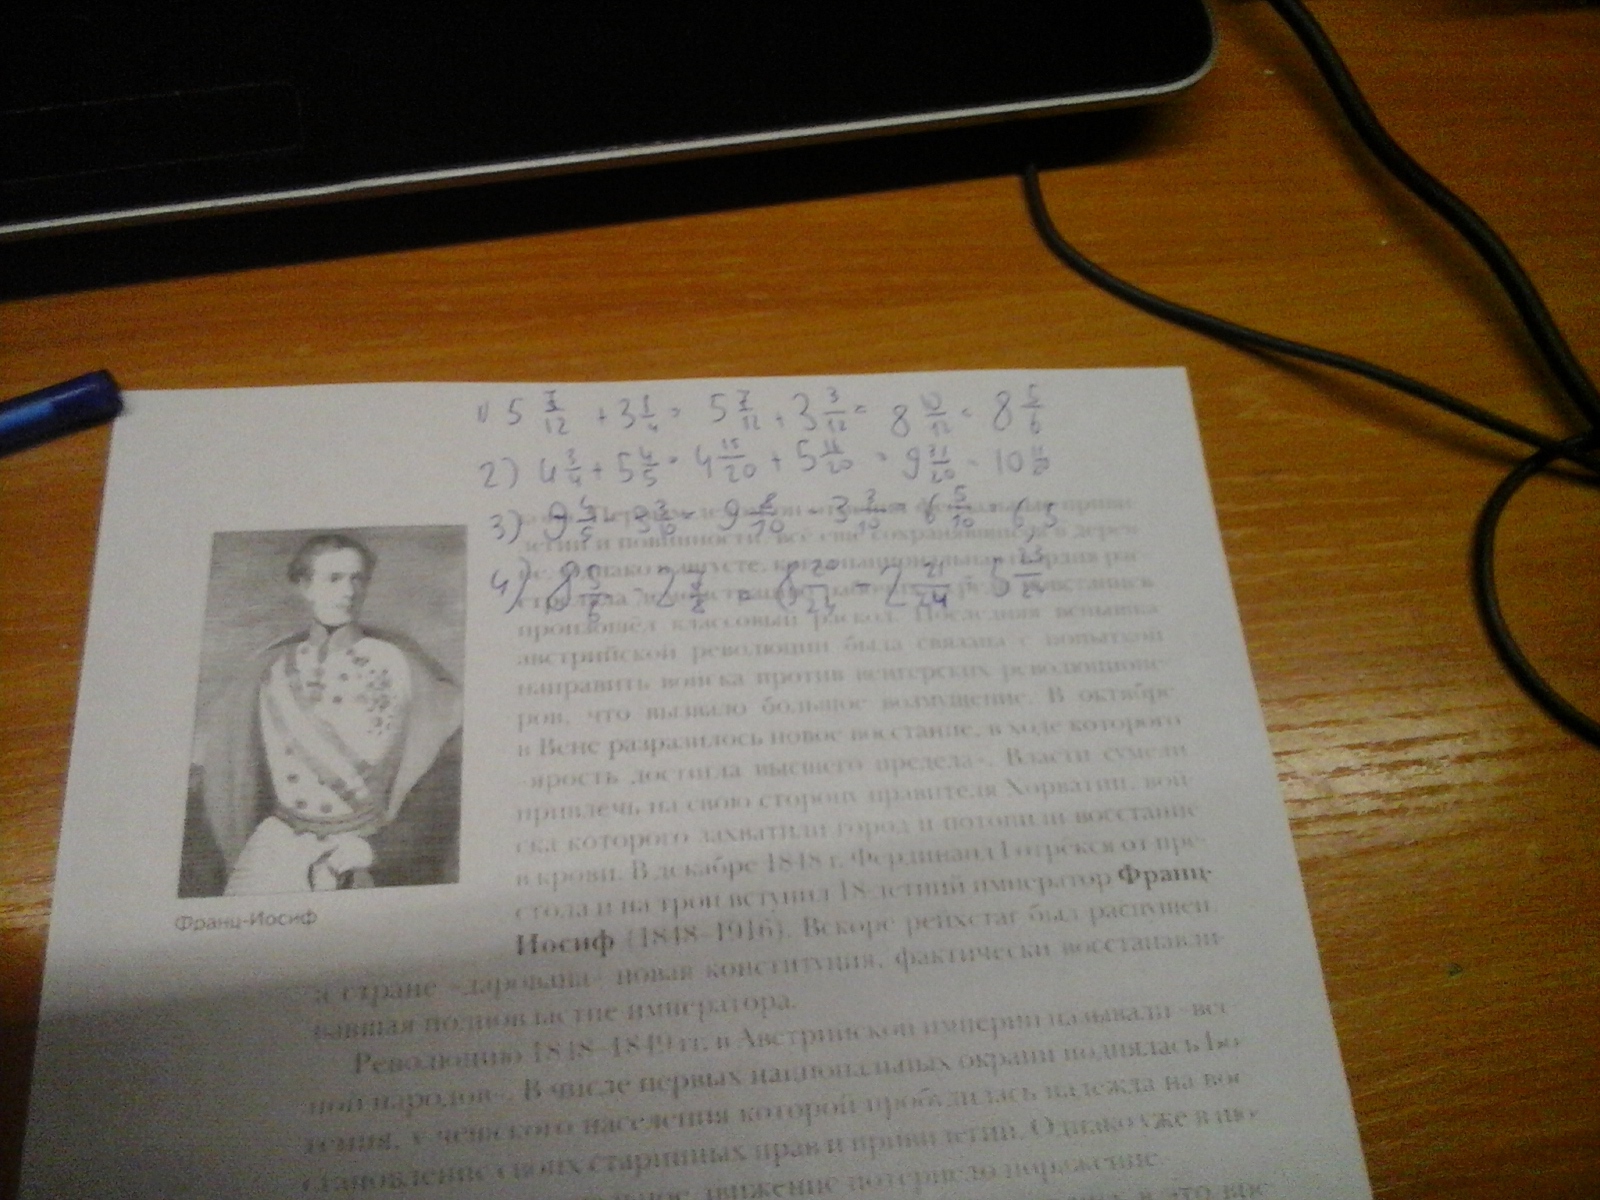 1) 5 7/12 + 3 1/4 = 5 7/12 + 3 3/12 = 8 10/12 = 8 5/6
2) 4 3/4 + 5 4/5 = 4 15/20 + 5 16/20 = 9 31/20 = 10 11/20
3) 9 4/5 - 3 3/10 = 9 8/10 - 3 3/10 = 6 5/10 = 6,5
4) 8 5/6 - 2 7/8 = 8 20/24 - 2 21/24 = 5 23/24
произошёл классовый раскол. Последняя вспышка
австрийской революции была связана с попыткой
направить войска против венгерских революционе-
ров, что вызвало большое возмущение. В октябре
в Вене разразилось новое восстание, в ходе которого
«ярость достигла высшего предела». Власти сумели
привлечь на свою сторону правителя Хорватии, вой-
ска которого захватили город и потопили восстание
в крови. В декабре 1848 г. Фердинанд I отрёкся от пре-
стола и на трон вступил 18-летний император Франц-
Франц-Иосиф
Иосиф (1848–1916). Вскоре рейхстаг был распущен,
а стране «дарована» новая конституция, фактически восстанавли-
вавшая полновластие императора.
Революцию 1848–1849 гг. в Австрийской империи называли «вес-
ной народов». В числе первых национальных окраин поднялась Бо-
гемия, у чешского населения которой пробудилась надежда на вос-
становление своих старинных прав и привилегий. Однако уже в ию-
движение потерпело поражение.